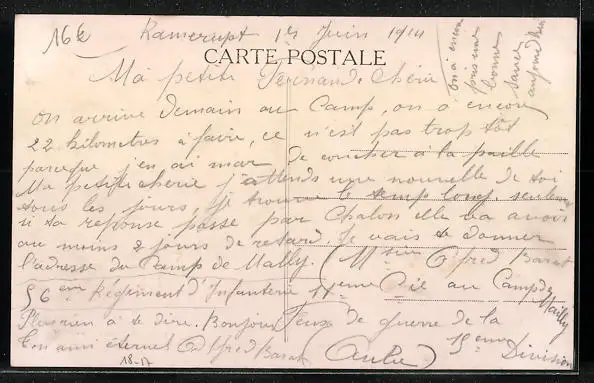 16€
Ramerupt 1er Juin 1911
CARTE POSTALE
Ma petite Fernande Chérie
on arrive demain au Camp, on a encore
22 kilometres à faire, ce n'est pas trop tôt
parceque j'en ai mar de coucher à la paille
Ma petite cherie j'attends une nouvelle de toi
tous les jours, je trouve le temp long, seulement
si ta reponse passe par Chalon elle va avoir
au moins 2 jours de retard. Je vais te donner
l'adresse du Camp de Mailly. (Msieur Alfred Barat
56eme Régiment d'Infanterie 11eme Cie au Camp de Mailly
Plus rien à te dire. Bonjour Jeux de guerre de la
Ton ami éternel Alfred Barat (Aube) 15eme Division
18-17
on a encore
pris une
bonne
sauce
aujourd'hui